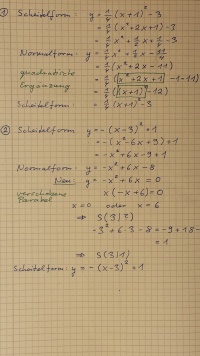 ① Scheitelform: y = 1/4 (x+1)² - 3
= 1/4 (x²+2x+1) - 3
= 1/4 x² + 1/2 x + 1/4 - 3
Normalform: y = 1/4 x² + 1/2 x - 11/4
quadratische = 1/4 (x²+2x-11)
Ergänzung = 1/4 (x²+2x+1 -1-11)
= 1/4 ((x+1)² -12)
Scheitelform: = 1/4 (x+1)² - 3
② Scheitelform y = -(x-3)² + 1
= -(x²-6x+9) + 1
= -x²+6x-9+1
Normalform: y = -x²+6x-8
Neu: y = -x²+6x = 0
verschobene x(-x+6) = 0
Parabel
x = 0 oder x = 6
⇒ S(3|?)
-3²+6·3-8 = -9+18-
= 1
⇒ S(3|1)
Scheitelform: y = -(x-3)² + 1